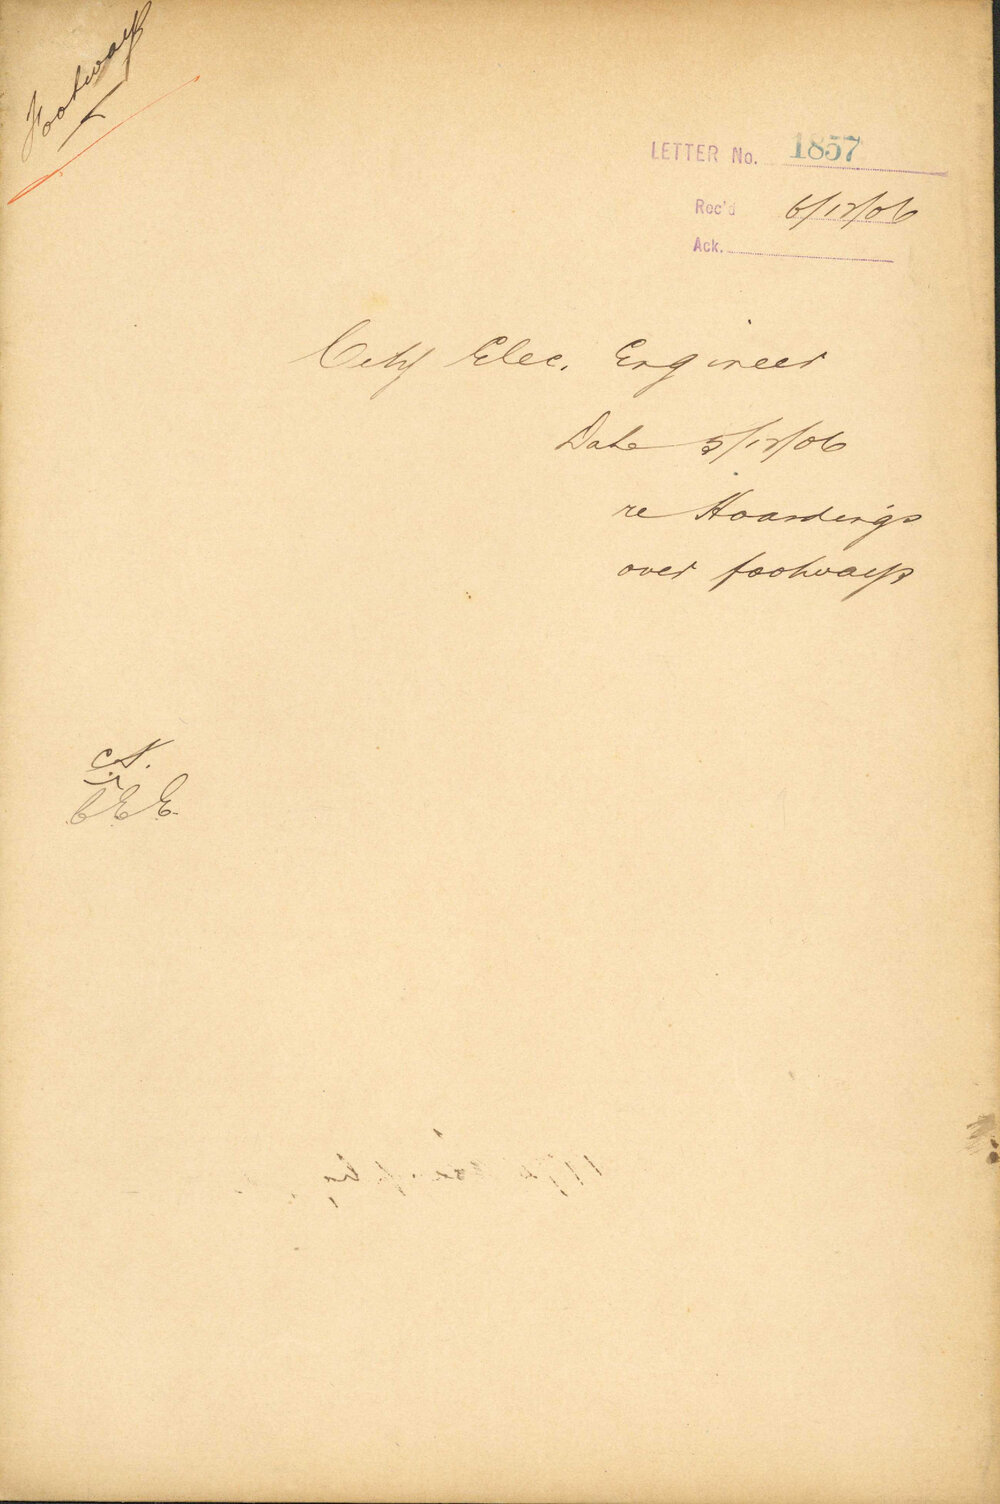 Footways
LETTER No. 1857
Rec'd 6/12/06
Ack.
City Elec. Engineer
Date 5/12/06
re Hoardings
over footways
C.E.E.